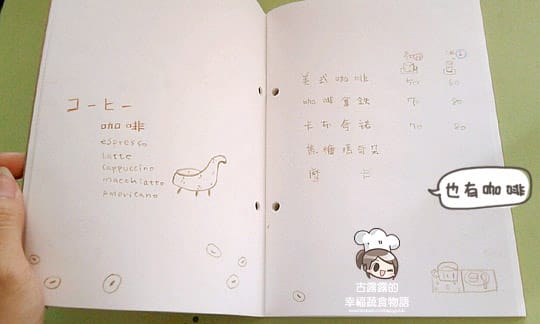 コーヒー
咖啡
espresso
latte
cappuccino
macchiatto
americano
熱 冰
美式咖啡 50 60
咖啡拿鐵 70 80
卡布奇諾 70 80
焦糖瑪奇朵
摩卡
也有咖啡
古露露的
幸福蔬食物語